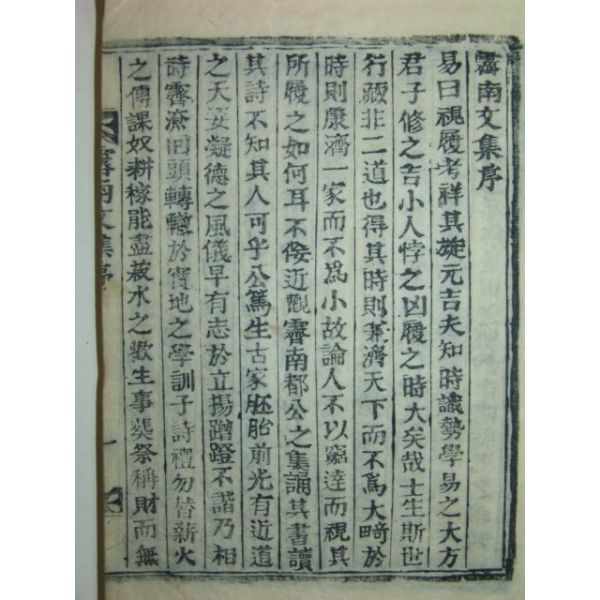 霽南文集序
易曰視履考祥其㫌元吉夫知時識勢學易之大方
君子修之吉小人悖之凶履之時大矣哉士生斯世
行藏非二道也得其時則兼濟天下而不爲大畸於
時則康濟一家而不爲小故論人不以窮達而視其
所履之如何耳不佞近觀霽南都公之集誦其書讀
其詩不知其人可乎公篤生古家胚胎前光有近道
之天姿凝德之風儀早有志於立揚蹭蹬不諧乃相
時霽潦回頭轉轍於實地之學訓子詩禮勿替薪火
之傳課奴耕稼能盡菽水之歡生事葬祭稱財而無
霽南文集序
一